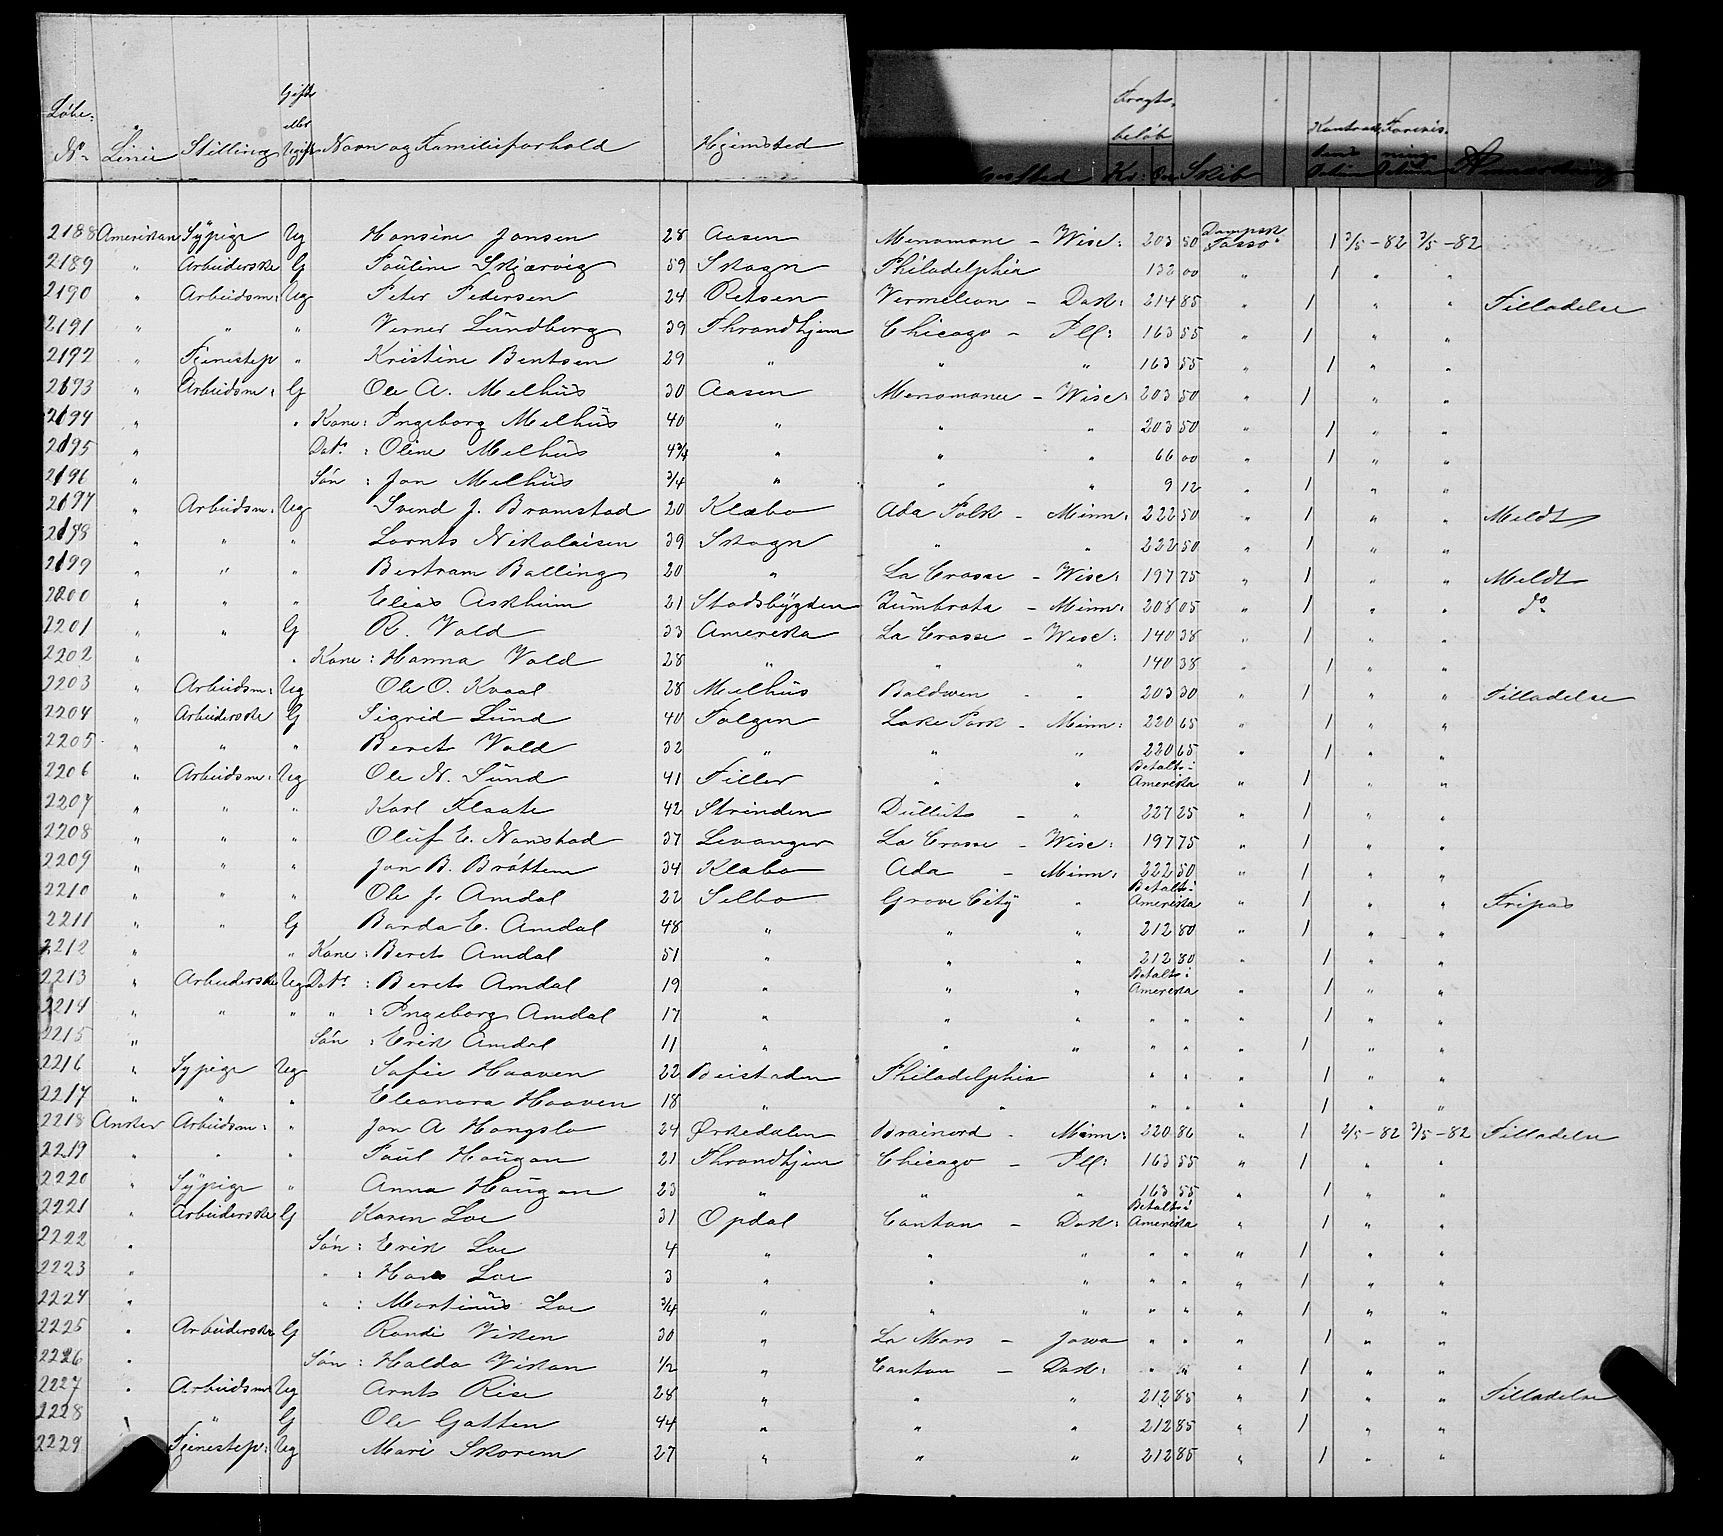 Løbe- Gift Fragt-
No. Linie Stilling eller Ugift Navn og Familieforhold Hjemsted beløb Kr: Øre Skib Anmærkning
2188 Amerikan Sÿpige Ug Hansine Jansen 28 Aasen Menomone - Wisc: 203 50 Dampsk Tasso 1 3/5-82 3/5-82
2189 " Arbeiderske G Pauline Skjærvig 59 Skogn Philadelphia 132 00 " 1 " "
2190 " Arbeidsm: Ug Peter Pedersen 24 Reisen Vermelion - Dak: 214 85 " 1 " " Tilladelse
2191 " " " Verner Lündberg 39 Thrandhjem Chicago - Ill: 163 55 " 1 " "
2192 " Tjenestep " Kristine Bentsen 29 " " " 163 55 " 1 " "
2193 " Arbeidsm: G Ole A. Melhüs 30 Aasen Menomonee - Wisc: 203 50 " 1 " "
2194 " " Kone: Ingeborg Melhüs 40 " " " 203 50 " 1 " "
2195 " Datr: Oline Melhüs 4 3/4 " " " 66 00 " 1 " "
2196 " Søn: Jon Melhüs 3/4 " " " 9 12 " 1 " "
2197 " Arbeidsm: Ug Svend J. Bramstad 20 Klæbo Ada Polk - Minn: 222 50 " 1 " " Meldt
2198 " " " Lornts Nikolaisen 39 Skogn " " 222 50 " 1 " "
2199 " " " Bertram Balling 20 " La Crosse - Wisc: 197 75 " 1 " " Meldt
2200 " " " Elias Askheim 21 Stadsbÿgden Zümbrota - Minn: 208 05 " 1 " " do
2201 " " G R. Vold 33 Amerika La Crosse - Wisc: 140 38 " 1 " "
2202 " " Kone: Hanna Vold 28 " " " 140 38 " 1 " "
2203 " Arbeidsm: Ug Ole O. Kvaal 28 Melhüs Baldwen - " 203 30 " 1 " " Tilladelse
2204 " Arbeiderske G Sigrid Lünd 40 Folgen Lake Park - Minn: 220 65 " 1 " "
2205 " " " Beret Vold 32 " " " 220 65 " 1 " "
2206 " Arbeidsm: Ug Ole N. Sünd 41 Tiller " " Betalt i Amerika " 1 " "
2207 " " " Karl Flaate 42 Strinden Dullut - " 227 25 " 1 " "
2208 " " " Olüf E. Nanstad 37 Levanger La Crosse - Wisc: 197 75 " 1 " "
2209 " " " Jon B. Brøttem 34 Klæbo Ada - Minn: 222 50 " 1 " "
2210 " " " Ole J. Amdal 22 Selbo Grove Citÿ " Betalt i Amerika " 1 " " Fripas
2211 " " G Barda E. Amdal 48 " " " 212 80 " 1 " "
2212 " " Kone: Beret Amdal 51 " " " 212 80 " 1 " "
2213 " Arbeiderske Ug Datr: Beret Amdal 19 " " " Betalt i Amerika " 1 " "
2214 " " " " : Ingeborg Amdal 17 " " " " " " 1 " "
2215 " Søn: Erik Amdal 11 " " " " " " 1 " "
2216 " Sypige Ug Sofie Haaven 22 Beistaden Philadelphia " " " 1 " "
2217 " " " Eleonora Haaven 18 " " " " " 1 " "
2218 Anker Arbeidsm: " Jon A Hongslo 24 Ørkedalen Brainord - Minn: 220 86 " 1 3/5-82 3/5-82 Tilladelse
2219 " " " Paül Haügan 21 Thrandhjem Chicago - Ill: 163 55 " 1 " "
2220 " Sÿpige " Anna Haügan 23 " " " 163 55 " 1 " "
2221 " Arbeiderske G Karen Loe 31 Opdal Canton - Dak: Betalt i Amerika " 1 " "
2222 " Søn: Erik Loe 4 " " " " " " 1 " "
2223 " " : Hans Loe 3 " " " " " " 1 " "
2224 " " : Martinüs Loe 3/4 " " " " " " 1 " "
2225 " Arbeiderske G Randi Viken 30 " La Mars - Jowa " " " 1 " "
2226 " Søn: Haldo Vikan 1/2 " Canton - Dak: " " " 1 " "
2227 " Arbeidsm Ug Arnt Rise 28 " " " 212 85 " 1 " " Tilladelse
2228 " " G Ole Gatten 44 " " " 212 85 " 1 " "
2229 " Tjenestep: Ug Mari Skorem 27 " " " 212 85 " 1 " "